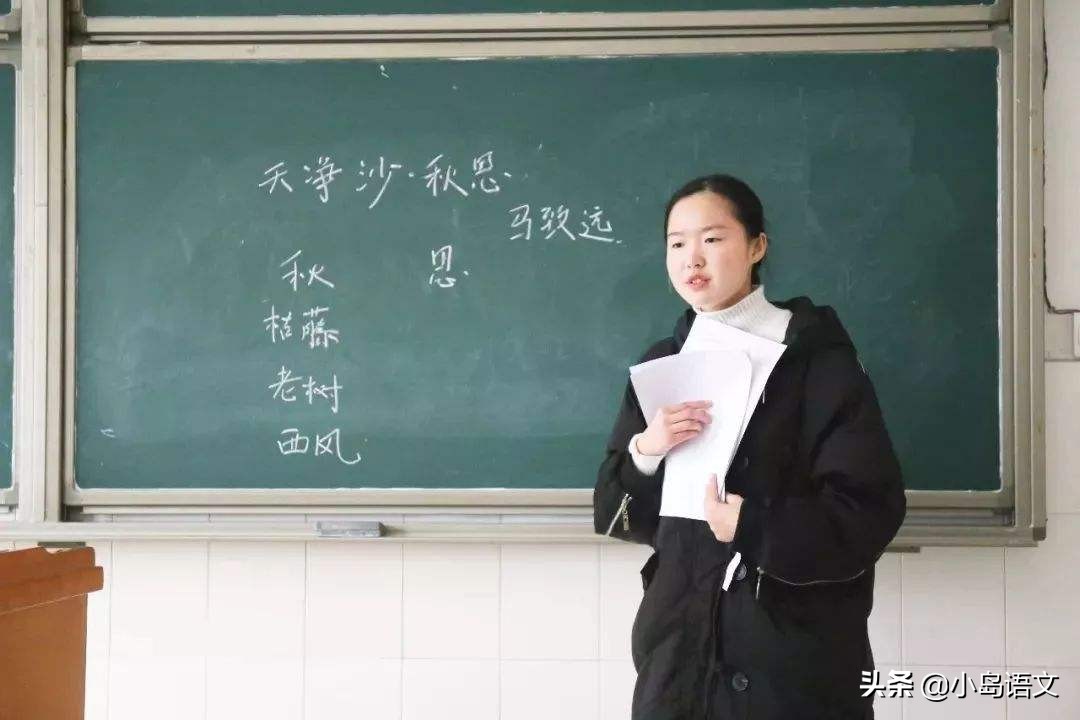 天净沙·秋思
马致远
秋 思
枯藤
老树
西风
头条 @小岛语文